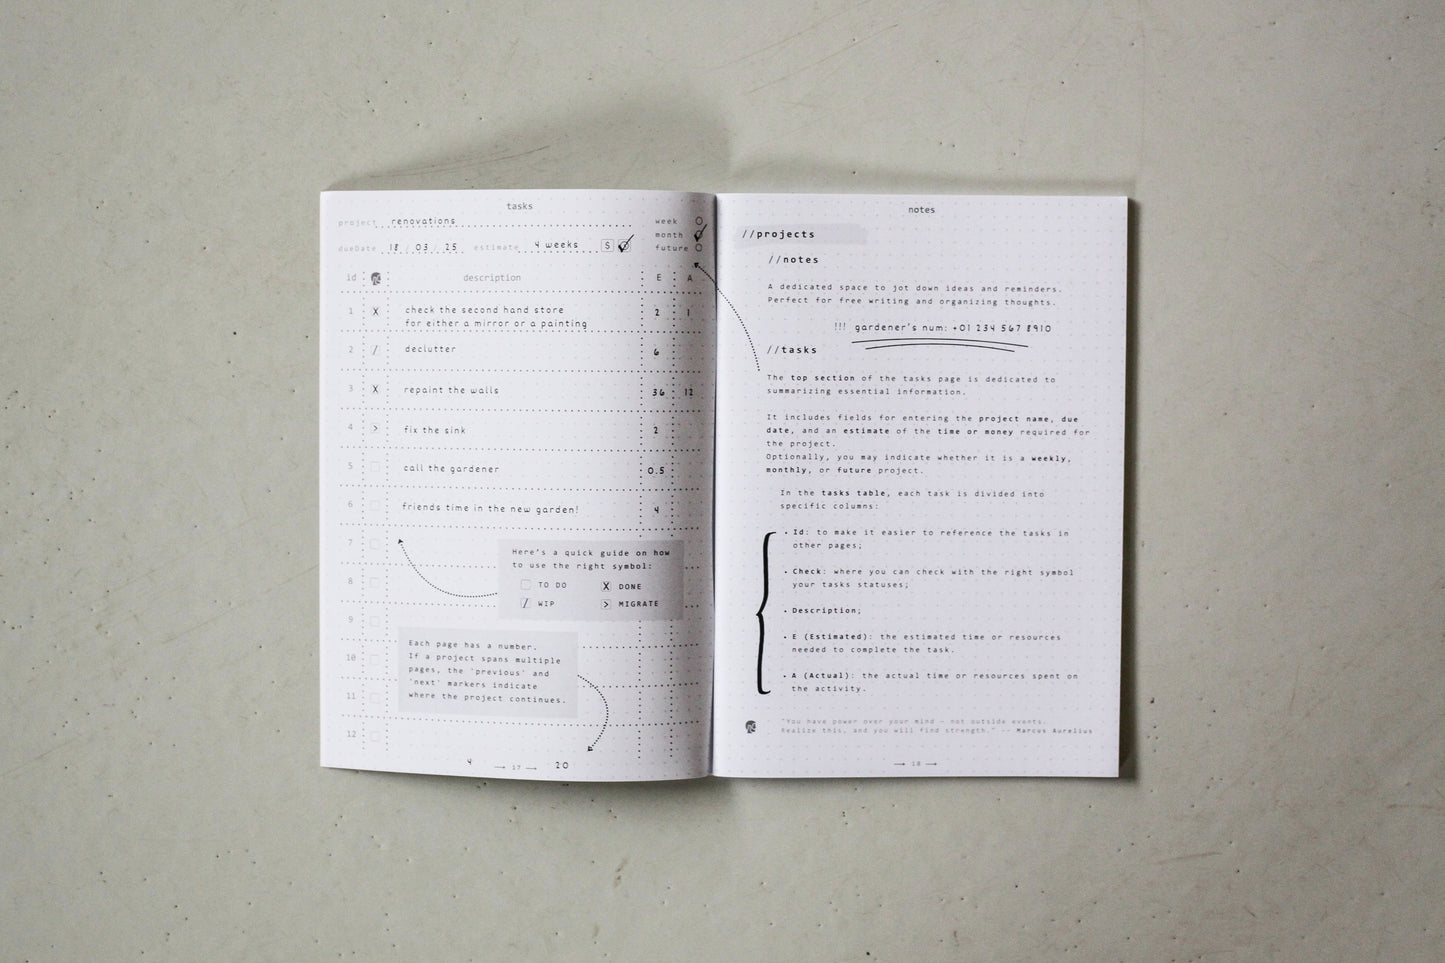 tasks
project renovations
dueDate 18 / 03 / 25 estimate 4 weeks S
week
month
future
id description E A
1 X check the second hand store
for either a mirror or a painting 2 1
2 / declutter 6
3 X repaint the walls 36 12
4 > fix the sink 2
5 call the gardener 0.5
6 friends time in the new garden! 4
7
8
9
10
11
12
Here's a quick guide on how
to use the right symbol:
TO DO X DONE
/ WIP > MIGRATE
Each page has a number.
If a project spans multiple
pages, the 'previous' and
'next' markers indicate
where the project continues.
4 → 17 → 20
notes
//projects
//notes
A dedicated space to jot down ideas and reminders.
Perfect for free writing and organizing thoughts.
!!! gardener's num: +01 234 567 8910
//tasks
The top section of the tasks page is dedicated to
summarizing essential information.
It includes fields for entering the project name, due
date, and an estimate of the time or money required for
the project.
Optionally, you may indicate whether it is a weekly,
monthly, or future project.
In the tasks table, each task is divided into
specific columns:
• Id: to make it easier to reference the tasks in
other pages;
• Check: where you can check with the right symbol
your tasks statuses;
• Description;
• E (Estimated): the estimated time or resources
needed to complete the task.
• A (Actual): the actual time or resources spent on
the activity.
"You have power over your mind — not outside events.
Realize this, and you will find strength." -- Marcus Aurelius
→ 18 →